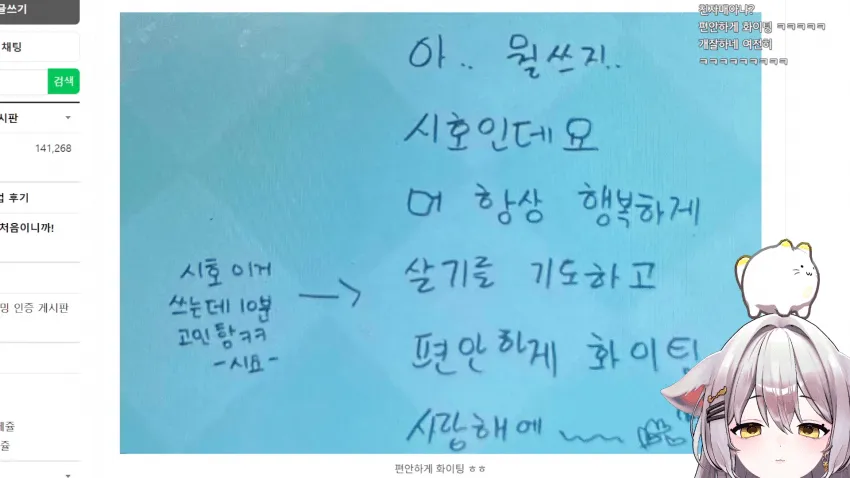 글쓰기
채팅
검색
시판
141,268
업 후기
처음이니까!
밍 인증 게시판
케쥴
쥴
전자매아니?
편안하게 화이팅 ㅋㅋㅋㅋㅋ
개잘하네 여전히
ㅋㅋㅋㅋㅋㅋㅋㅋㅋ
아.. 뭘쓰지..
시호인데요
머 항상 행복하게
살기를 기도하고
편안하게 화이팅
사랑해에
시호 이거
쓰는데 10분
고민함ㅋㅋ
-시요-
편안하게 화이팅 ㅎㅎ